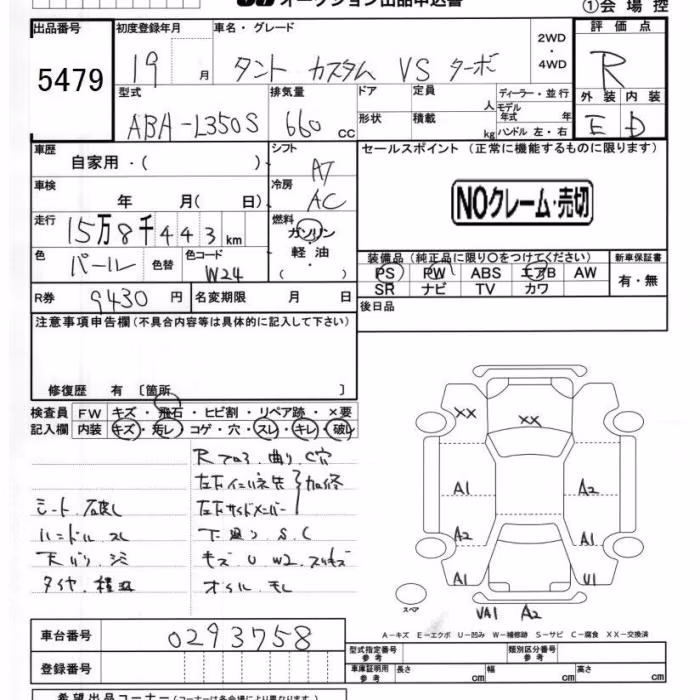 オークション出品申込書
①会場控
出品番号 5479
初度登録年月 19 月
車名・グレード タント カスタム VS ターボ
2WD・4WD
評価点 R
外装 E 内装 D
型式 ABA-L350S
排気量 660 cc
ドア
定員 人
ディーラー・並行
モデル年式 年
形状
積載 kg
ハンドル 左・右
車歴 自家用・( )
シフト AT
セールスポイント (正常に機能するものに限ります)
NOクレーム・売切
車検 年 月( 日)
冷房 AC
走行 15万8千443km
燃料 ガソリン・軽油・( )
色 パール 色替
色コード W24
装備品 (純正品に限り○をつけてください)
PS PW ABS エアB AW
SR ナビ TV カワ
新車保証書 有・無
R券 9430円
名変期限 月 日
後日品
注意事項申告欄(不具合内容等は具体的に記入して下さい)
修復歴 有 [箇所 ]
検査員記入欄
FW キズ・飛石・ヒビ割・リペア跡・×要
内装 キズ・汚レ・コゲ・穴・スレ・キレ・破レ
シート 破レ
ハンドル スレ
タイヤ
曲り C穴
左右サイドメンバー
下廻り S.C
キズ U W2
オイル モレ
XX
XX
A1
A2
A2
A1
A1
U1
スペア
VA1 A2
A-キズ E-エクボ U-凹み W-補修跡 S-サビ C-腐食 XX-交換済
車台番号 0293758
登録番号
型式指定番号 参考
類別区分番号 参考
車庫証明用 参考 長さ cm 幅 cm 高さ cm
希望出品コーナー (コーナーは各会場により異なります)